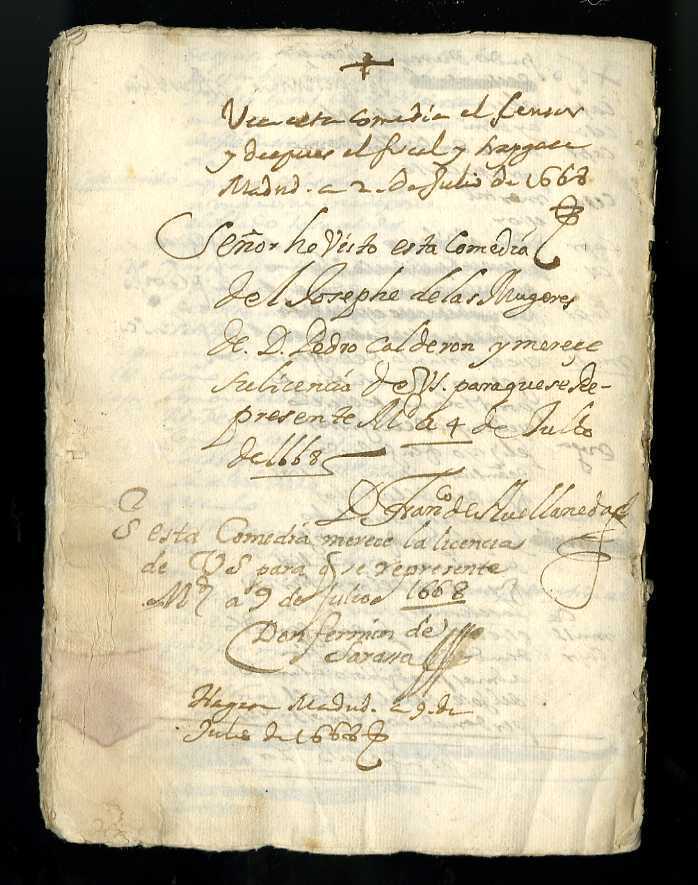 Vea esta Comedia el Censor
y despues el fiscal y traygase
Madrid. a 2. de Julio de 1668
Señor he Visto esta Comedia
del Josephe de las Mugeres
de. D. Pedro Calderon y mereçe
su licencia de V.S. para que se Re-
presente M.d a 4 de Julio
de 1668
D. Fran.co de Avellaneda
S.r esta Comedia merece la licencia
de V S para q se represente
M.d a 9 de Julio de 1668
Don fermin de
Sarasa
Hagase Madrid. a 9. de
Julio de 1668